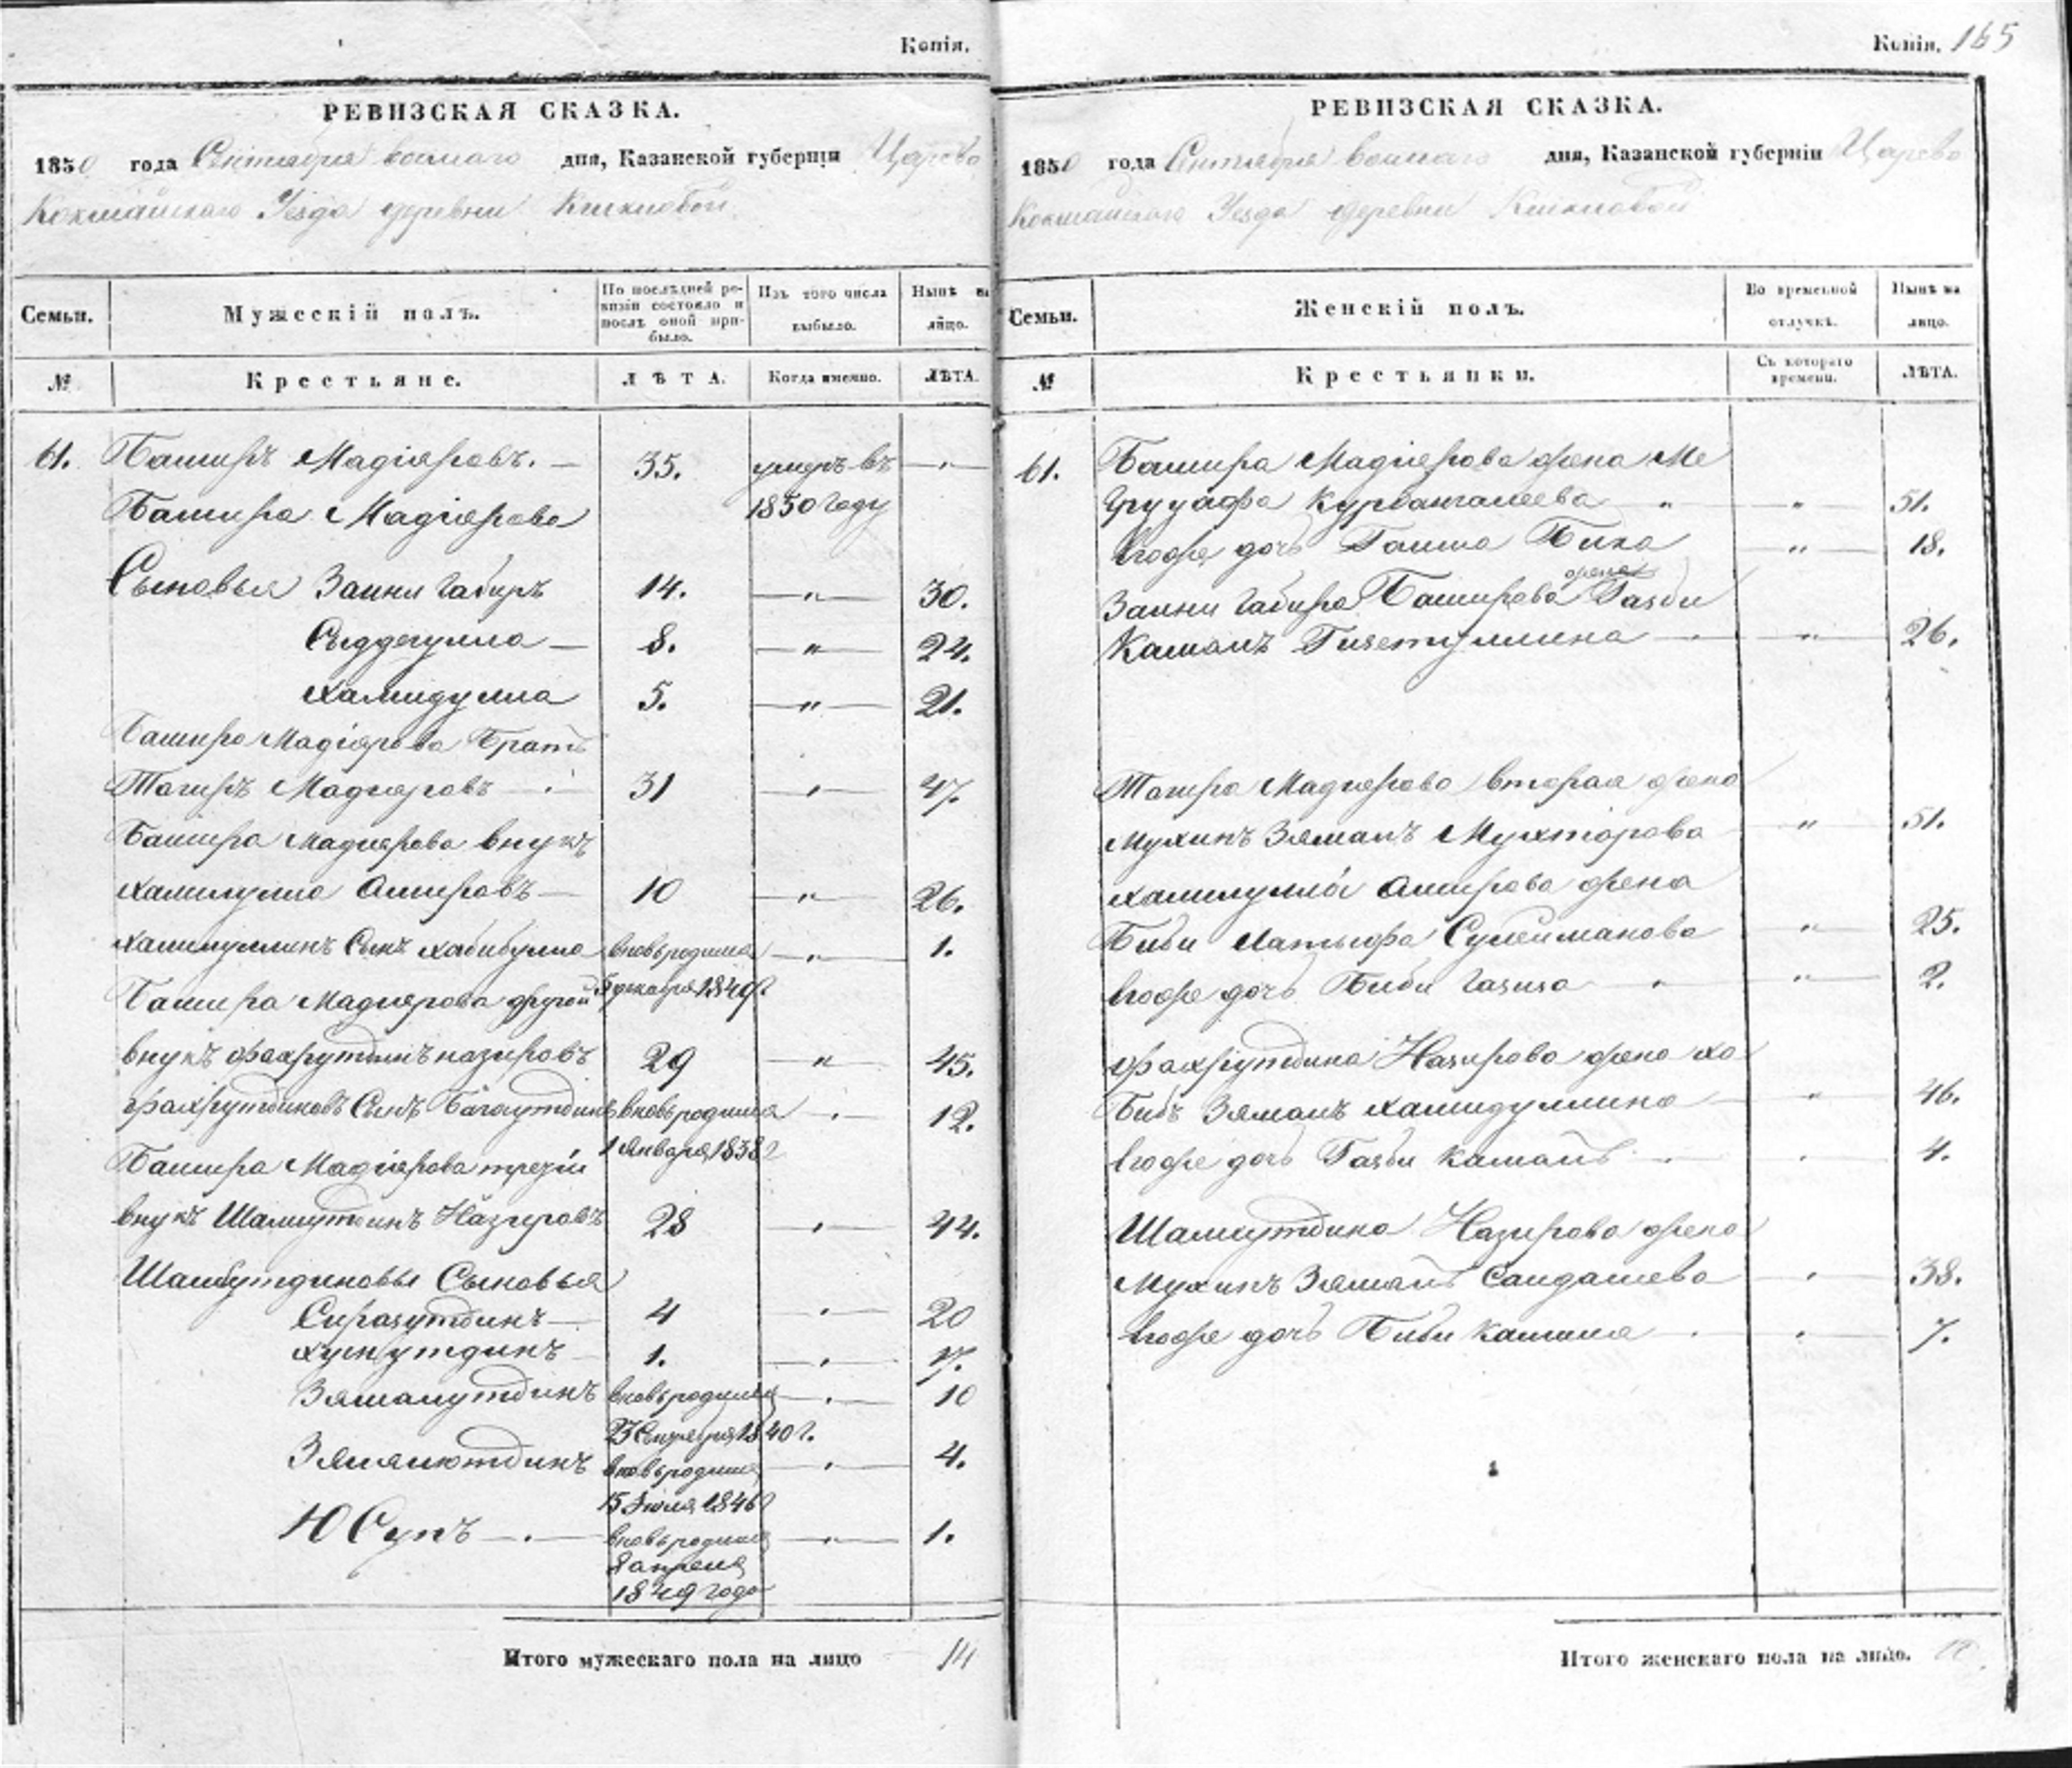 Копія.
РЕВИЗСКАЯ СКАЗКА.
1850 года Сентября восмаго дня, Казанской губерніи Царево
Кокшайскаго Уезда деревни
Семьи.
Мужескій полъ.
По послѣдней ре-
визіи состояло и
послѣ оной при-
было.
Изъ того числа
выбыло.
Нынѣ на
лицо.
№
Крестьяне.
ЛѢТА.
Когда именно.
ЛѢТА.
61. Баширъ Мадіяровъ. — 35. умеръ въ — " —
Башира Мадіярова 1850 году
Сыновья Заини Габиръ 14. — " — 30.
Сыддегулла — 8. — " — 24.
Хамидулла 5. — " — 21.
Башира Мадіярова Братъ
Тагиръ Мадияровъ 31 — " — 47.
Башира Мадиярова внукъ
Хамилулла Амировъ — 10 — " — 26.
Хамилуллинъ Сынъ Хабибулла вновь родился — " — 1.
Башира Мадиярова другой 5 декабря 1849 г
внукъ Фахрутдинъ Назировъ 29 — " — 45.
Фахрутдиновъ Сынъ Багаутдинъ вновь родился — " — 12.
Башира Мадіярова третій 1 Января 1838 г
внукъ Шамсутдинъ Назировъ 28 — " — 44.
Сыновья
Сиразутдинъ — 4 — " — 20
Хуснутдинъ 1. — " — 17.
Зямалутдинъ вновь родился — " — 10
1840 г.
вновь родился — " — 4.
15 Іюля 1846 г
Юсупъ — вновь родился — " — 1.
8 апреля
1849 года
Итого мужескаго пола на лицо 14
Копія. 165
РЕВИЗСКАЯ СКАЗКА.
1850 года Сентября восмаго дня, Казанской губерніи Царево
Кокшайскаго Уезда деревни
Семьи.
Женскій полъ.
Во временной
отлучкѣ.
Нынѣ на
лицо.
№
Крестьянки.
Съ котораго
времени.
ЛѢТА.
61. Башира Мадиярова жена Ме
Курбангалеева — " — " — 51.
Ево же дочь Гаиша Бика — " — 18.
жена
Заини Габира Баширова Газби
Камалъ Гизетуллина — " — 26.
Тагира Мадиярова вторая жена
Мухинъ Зямалъ Мухтарова " — 51.
Хамилуллы Амирова жена
Биби Латыфа Сулейманова " — 25.
Ево же дочь Биби Газиза — " — 2.
Фахрутдина Назирова жена Ха
Бибъ Зямалъ Хамидуллина — " — 46.
Ево же дочь Газби Камалъ — " — 4.
Шамсутдина Назирова жена
Мухинъ Зямалъ Саидашева " — 38.
Ево же дочь Биби Камиля — " — 7.
Итого женскаго пола на лицо.